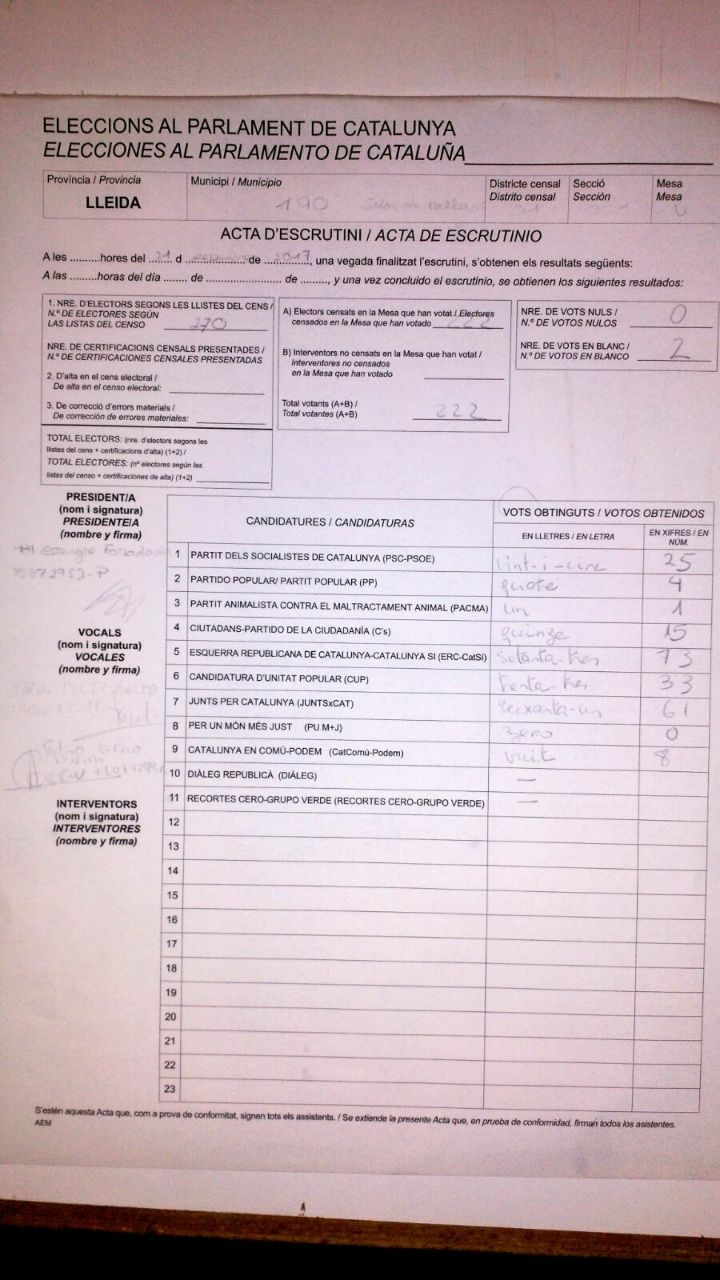 ELECCIONS AL PARLAMENT DE CATALUNYA
ELECCIONES AL PARLAMENTO DE CATALUÑA
Província / Provincia
LLEIDA
Municipi / Municipio
190
Districte censal
Distrito censal
Secció
Sección
Mesa
Mesa
ACTA D'ESCRUTINI / ACTA DE ESCRUTINIO
A les .........hores del 21 d ................. de 2017, una vegada finalitzat l'escrutini, s'obtenen els resultats següents:
A las .........horas del día ....... de ........................ de ........, y una vez concluido el escrutinio, se obtienen los siguientes resultados:
1. NRE. D'ELECTORS SEGONS LES LLISTES DEL CENS /
N.º DE ELECTORES SEGÚN
LAS LISTAS DEL CENSO 270
NRE. DE CERTIFICACIONS CENSALS PRESENTADES /
N.º DE CERTIFICACIONES CENSALES PRESENTADAS
2. D'alta en el cens electoral /
De alta en el censo electoral:
3. De correcció d'errors materials /
De corrección de errores materiales:
TOTAL ELECTORS: (nre. d'electors segons les
llistes del cens + certificacions d'alta) (1+2) /
TOTAL ELECTORES: (nº electores según las
listas del censo + certificaciones de alta) (1+2)
A) Electors censats en la Mesa que han votat / Electores
censados en la Mesa que han votado 222
B) Interventors no censats en la Mesa que han votat /
Interventores no censados
en la Mesa que han votado
Total votants (A+B) /
Total votantes (A+B) 222
NRE. DE VOTS NULS /
N.º DE VOTOS NULOS 0
NRE. DE VOTS EN BLANC /
N.º DE VOTOS EN BLANCO 2
PRESIDENT/A
(nom i signatura)
PRESIDENTE/A
(nombre y firma)
VOCALS
(nom i signatura)
VOCALES
(nombre y firma)
INTERVENTORS
(nom i signatura)
INTERVENTORES
(nombre y firma)
CANDIDATURES / CANDIDATURAS
VOTS OBTINGUTS / VOTOS OBTENIDOS
EN LLETRES / EN LETRA
EN XIFRES / EN NÚM.
1 PARTIT DELS SOCIALISTES DE CATALUNYA (PSC-PSOE) vint-i-cinc 25
2 PARTIDO POPULAR/ PARTIT POPULAR (PP) quatre 4
3 PARTIT ANIMALISTA CONTRA EL MALTRACTAMENT ANIMAL (PACMA) un 1
4 CIUTADANS-PARTIDO DE LA CIUDADANÍA (C's) quinze 15
5 ESQUERRA REPUBLICANA DE CATALUNYA-CATALUNYA SI (ERC-CatSí) setanta-tres 73
6 CANDIDATURA D'UNITAT POPULAR (CUP) trenta-tres 33
7 JUNTS PER CATALUNYA (JUNTSxCAT) seixanta-un 61
8 PER UN MÓN MÉS JUST (PU M+J) zero 0
9 CATALUNYA EN COMÚ-PODEM (CatComú-Podem) vuit 8
10 DIÀLEG REPUBLICÀ (DIÀLEG) —
11 RECORTES CERO-GRUPO VERDE (RECORTES CERO-GRUPO VERDE) —
12
13
14
15
16
17
18
19
20
21
22
23
S'estén aquesta Acta que, com a prova de conformitat, signen tots els assistents. / Se extiende la presente Acta que, en prueba de conformidad, firman todos los asistentes.
AEM